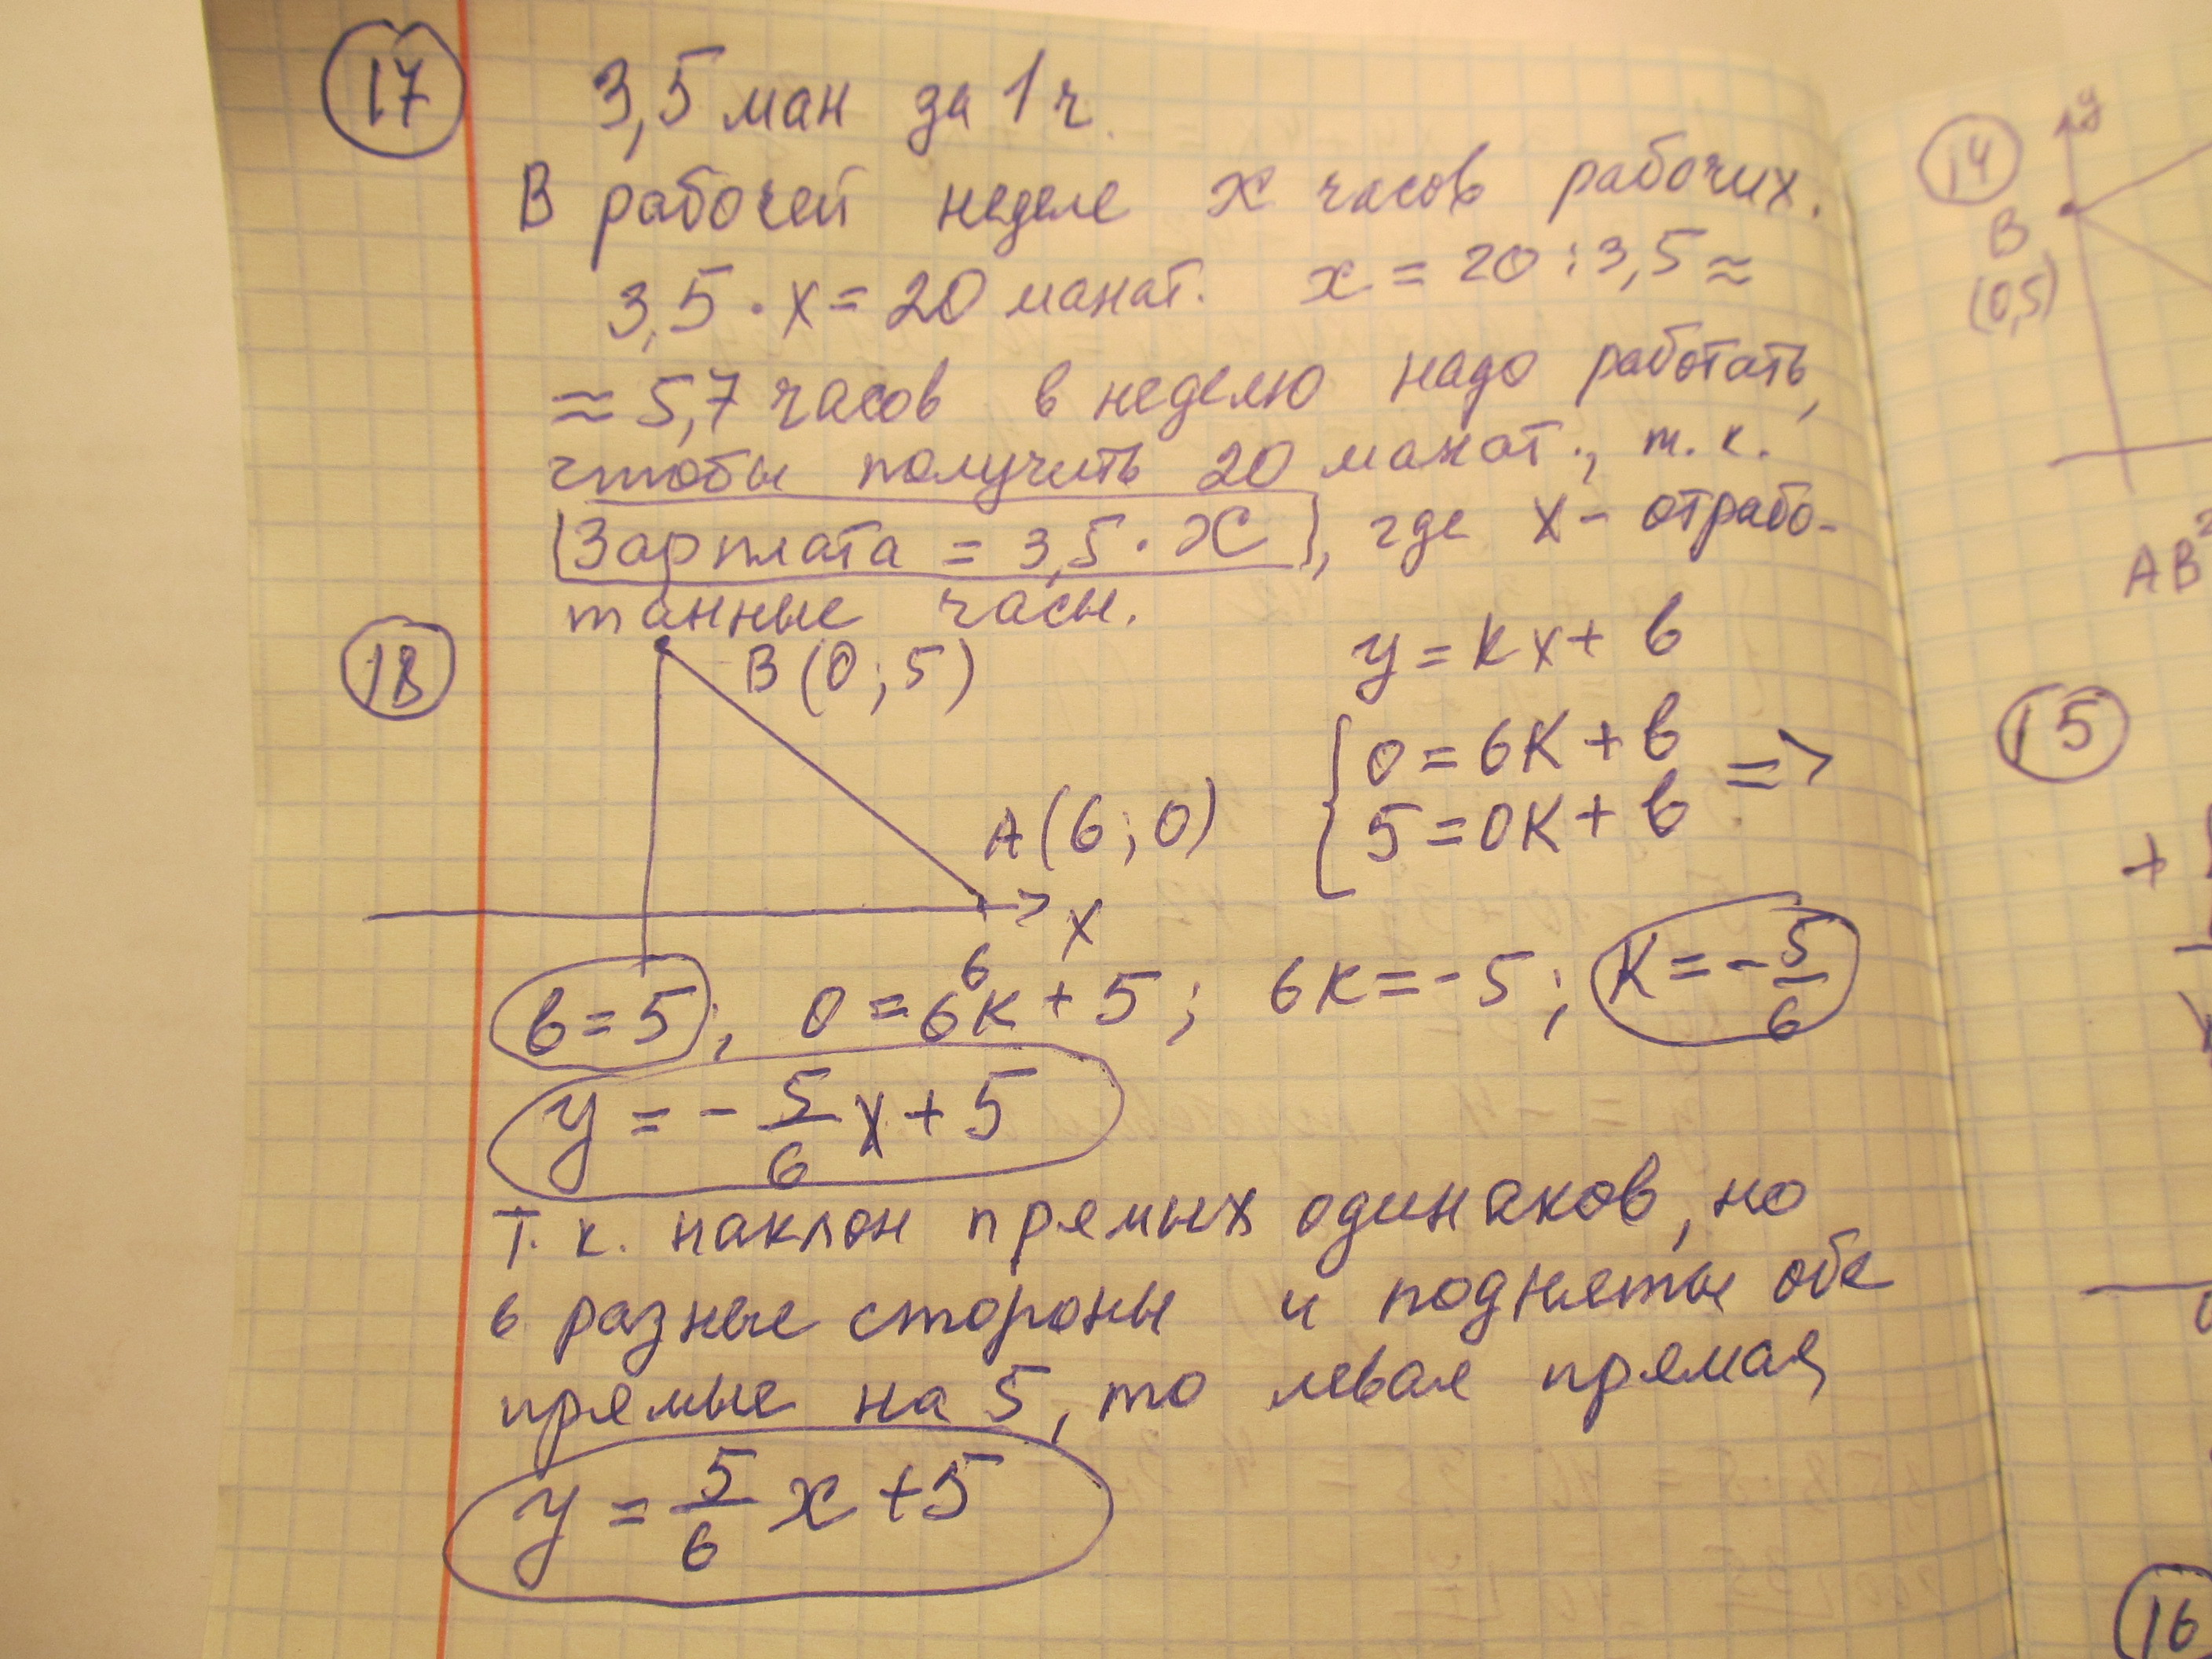 17
3,5 ман за 1 ч.
В рабочей неделе x часов рабочих.
3,5 · x = 20 манат. x = 20 : 3,5 ≈
≈ 5,7 часов в неделю надо работать,
чтобы получить 20 манат., т. к.
Зарплата = 3,5 · x, где x - отрабо-
танные часы.
18
B (0; 5)
A (6; 0)
x
6
y = kx + b
0 = 6k + b
5 = 0k + b =>
b = 5; 0 = 6k + 5; 6k = -5; k = -5/6
y = -5/6 x + 5
Т. к. наклон прямых одинаков, но
в разные стороны и подняты обе
прямые на 5, то левая прямая
y = 5/6 x + 5
14
y
B
(0,5)
AB²
15
+
16